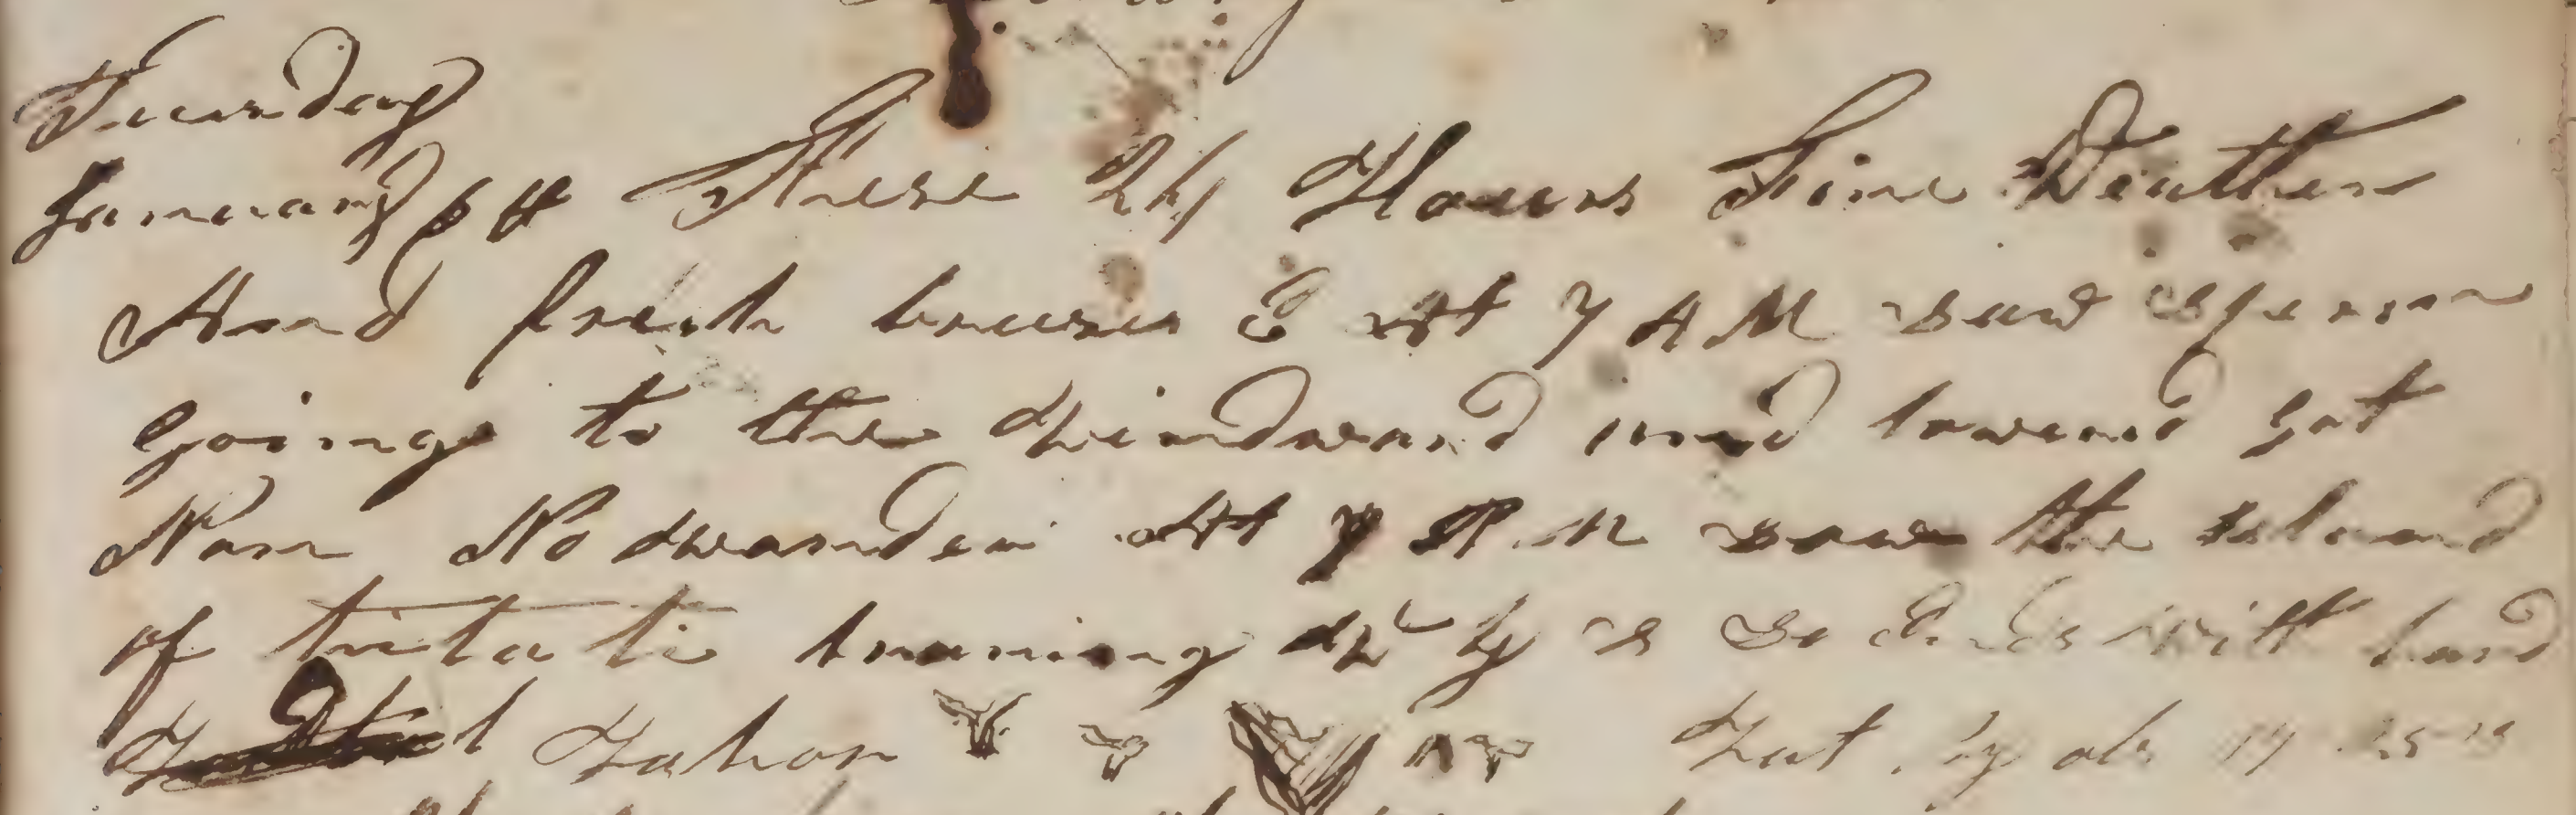 Tuesday
January 6 th These 24 Hours Fine Weather
And fresh breeses E At 7 A M saw sperm
going to the windward and lowerd got
Non No wonder At 7 P M saw the island
of bearing W by S So Ends with hard
Labor Lat by ob 17 25